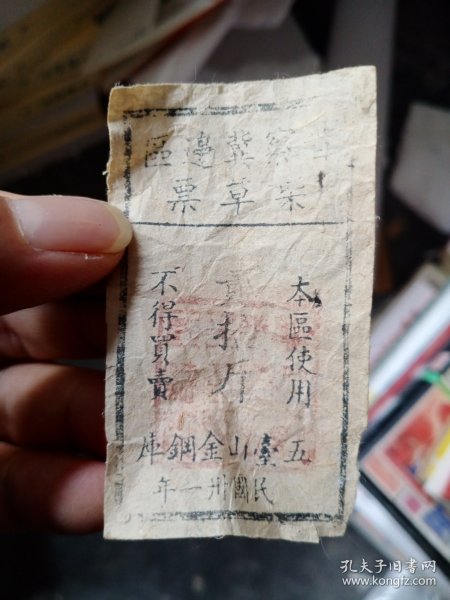 晉察冀邊區
柴草票
本區使用
拾斤
不得買賣
五臺山金鋼庫
民國卅一年
孔夫子旧书网
www.kongfz.com